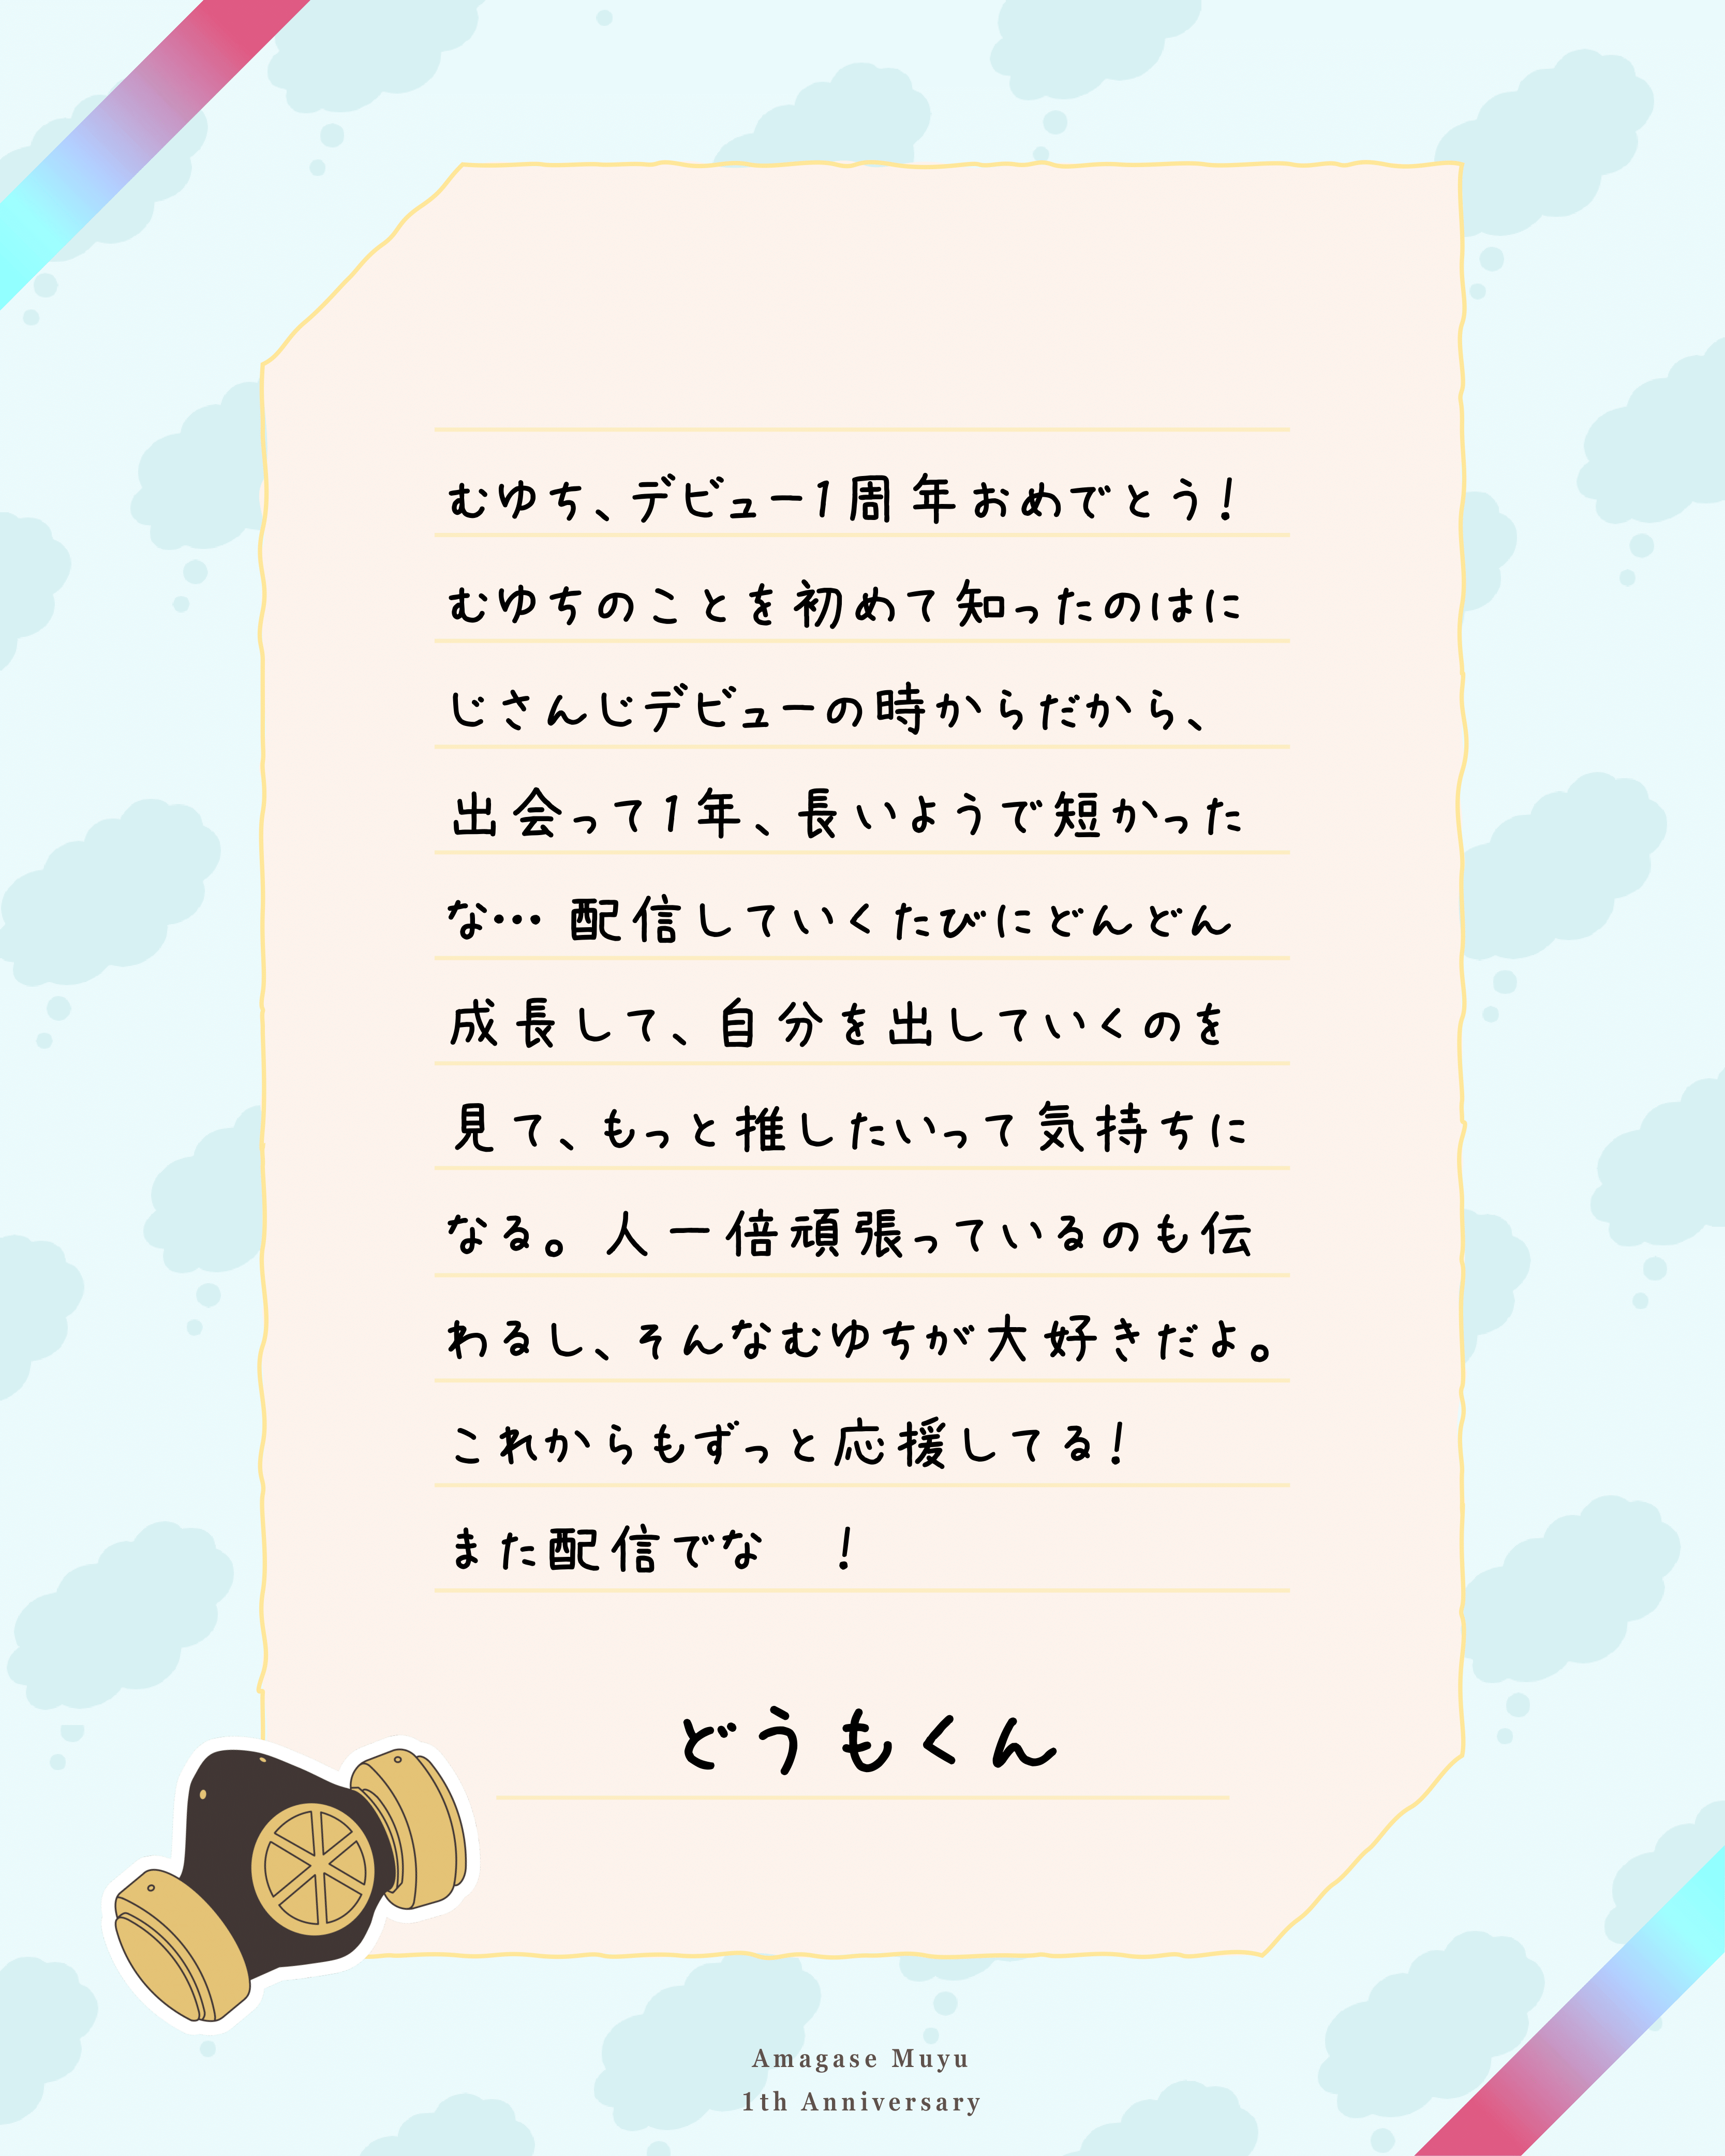 むゆち、デビュー1周年おめでとう!
むゆちのことを初めて知ったのはに
じさんじデビューの時からだから、
出会って1年、長いようで短かった
な… 配信していくたびにどんどん
成長して、自分を出していくのを
見て、もっと推したいって気持ちに
なる。人一倍頑張っているのも伝
わるし、そんなむゆちが大好きだよ。
これからもずっと応援してる!
また配信でな　!
どうもくん
Amagase Muyu
1th Anniversary